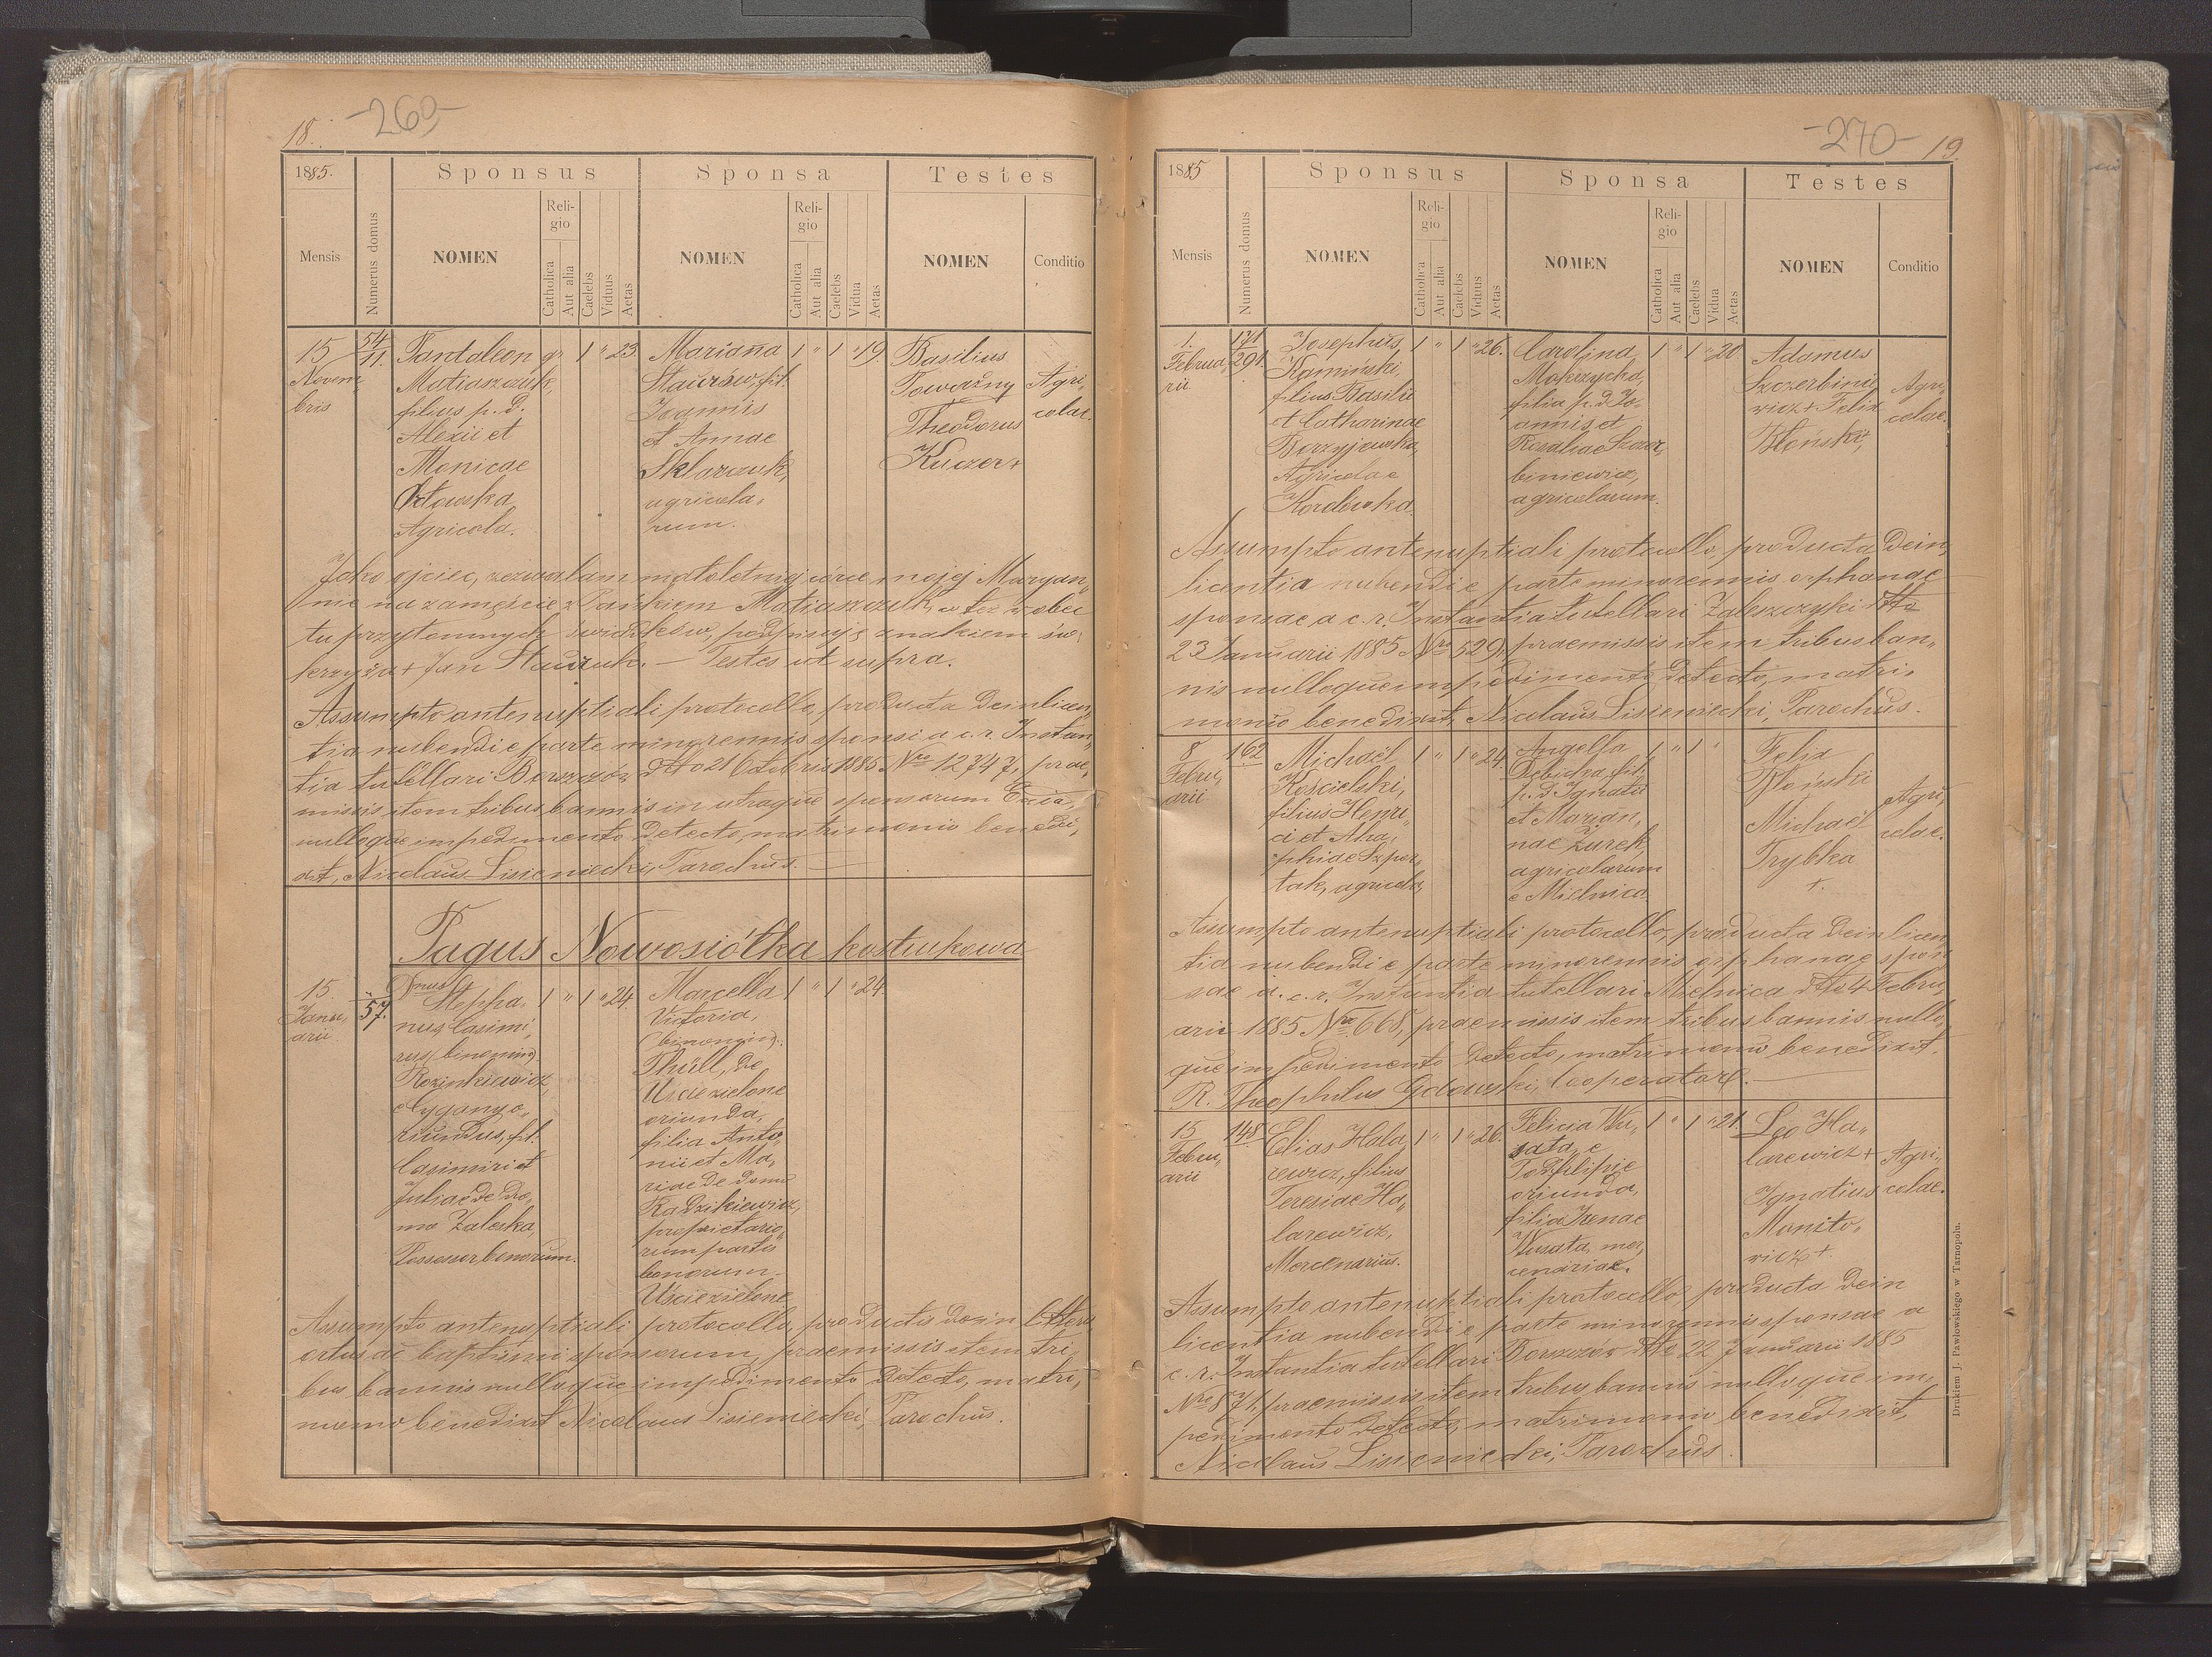 18.
-269-
1885.
Sponsus
Sponsa
Testes
Mensis
Numerus domus
NOMEN
Religio
Catholica
Aut alia
Caelebs
Viduus
Aetas
NOMEN
Religio
Catholica
Aut alia
Caelebs
Vidua
Aetas
NOMEN
Conditio
15
Novem
bris
54/11.
Pantaleon
Matiaszczuk,
filius p. d.
Alexii et
Monicae
Agricola.
gr 1 " 23.
Marianna
fil.
Joannis
et Annae
Sklarczuk,
agricola,
rum.
1 " 1 " 19.
Basilius
Towarzny
Theodorus
Kuczer +
Agri,
colae.
Jako ojciec, zezwalam małoletniej córce mojej Maryan,
nie na zamęście z Pańkiem Matiaszczuk, w też wobec
tu przytomnych świadków, podpisuję znakiem św.
krzyża + Jan Testes ut supra.
Assumpto antenuptiali protocollo, producta dein licen,
tia nubendi e parte minorennis sponsi a c. r. Instan,
tia tutellari Borszczów dtto 21 Octobris 1885 Nro 12747, prae,
missis item tribus bannis in utraque sponsorum
nulloque impedimento detecto, matrimonio benedi,
xit, Nicolaus Lisieniecki, Parochus.
Pagus Nowosiółka kostiukowa
15
Janu,
arii
57.
Dnus
Stepha,
nus Casimi,
rus binomin.
Rozinkiewicz,
e Cygany o,
riundus, fil.
Casimiri et
Juliae de do,
mo Zaleska,
Possessor bonorum.
1 " 1 " 24.
Marcella
Victoria,
(binomin).
Thüll, de
Uściezielone
oriunda,
filia Anto,
nii et Ma,
riae de domo
Radzikiewicz,
proprietario,
rum partis
bonorum
Uściezielone
1 " 1 " 24.
Assumpto antenuptiali protocollo, productis dein litteris
ortus ac baptismi sponsorum, praemissis item tri,
bus bannis nulloque impedimento detecto, matri,
monio benedixit Nicolaus Lisieniecki, Parochus.
-270-
19.
1885
Sponsus
Sponsa
Testes
Mensis
Numerus domus
NOMEN
Religio
Catholica
Aut alia
Caelebs
Viduus
Aetas
NOMEN
Religio
Catholica
Aut alia
Caelebs
Vidua
Aetas
NOMEN
Conditio
1.
Februa,
rii
171/291.
Josephus
Kamiński,
filius Basilii
et Catharinae
Agricolae
1 " 1 " 26.
Carolina
Mokrzycka,
filia p. d. Jo,
annis et
Rozaliae Szczer,
biniewicz,
agricolarum.
1 " 1 " 20.
Adamus
Szczerbinie,
wicz + Felix
Błoński,
Agri,
colae.
Assumpto antenuptiali protocollo, producta dein,
licentia nubendi e parte minorennis orphanae
sponsae a c. r. Instantia tutellari Zaleszczyki dtto
23 Januarii 1885 Nro 529, praemissis item tribus ban,
nis nulloque impedimento detecto, matri,
monio benedixit, Nicolaus Lisieniecki, Parochus.
8
Febru,
arii
162
Michaël
Kościelski,
filius Henri,
ci et Aha,
phiae Szper,
tak, agricola,
1 " 1 " 24.
Angella
Dębicka, fil.
p. d. Ignatii
et Marian,
nae Żurek,
agricolarum
e Mielnica.
1 " 1 "
Felix
Błoński
Michaël
Trybka
+.
Agri,
colae.
Assumpto antenuptiali protocollo, producta dein licen,
tia nubendi e parte minorennis orphanae spon
sae a. c. r. Instantia tutellari Mielnica dtto 4 Febru,
arii 1885 Nro 668, praemissis item tribus bannis nullo,
que impedimento detecto, matrimonio benedixit.
R. Theophilus Cooperator.
15
Febru,
arii
148
Elias Hala,
rewicz, filius
Teresiae Ha,
larewicz,
Mercenarius.
1 " 1 " 26.
Felicia Wu,
sata, e
Podfilipie
oriunda,
filia Irenae
Wusata, mer,
cenariae.
1 " 1 " 21.
Leo Ha,
larewicz +
Ignatius
Monito,
wicz +.
Agri,
colae.
Assumpto antenuptiali protocollo, producta dein
licentia nubendi e parte minorennis sponsae a
c. r. Instantia tutellari Borszczów dtto 22 Januarii 1885
Nro 871, praemissis item tribus bannis nulloque im,
pedimento detecto, matrimonio benedixit,
Nicolaus Lisieniecki, Parochus.
Drukiem J. Pawłowskiego w Tarnopolu.